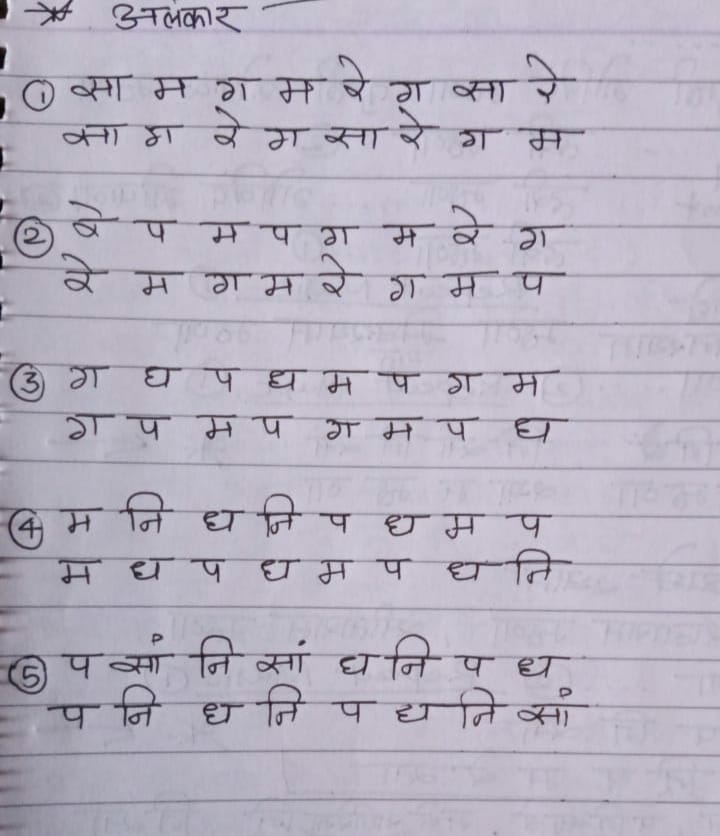 * अलंकार
① सा म ग म रे ग सा रे
सा ग रे ग सा रे ग म
② रे प म प ग म रे ग
रे म ग म रे ग म प
③ ग ध प ध म प ग म
ग प म प ग म प ध
④ म नि ध नि प ध म प
म ध प ध म प ध नि
⑤ प सां नि सां ध नि प ध
प नि ध नि प ध नि सां